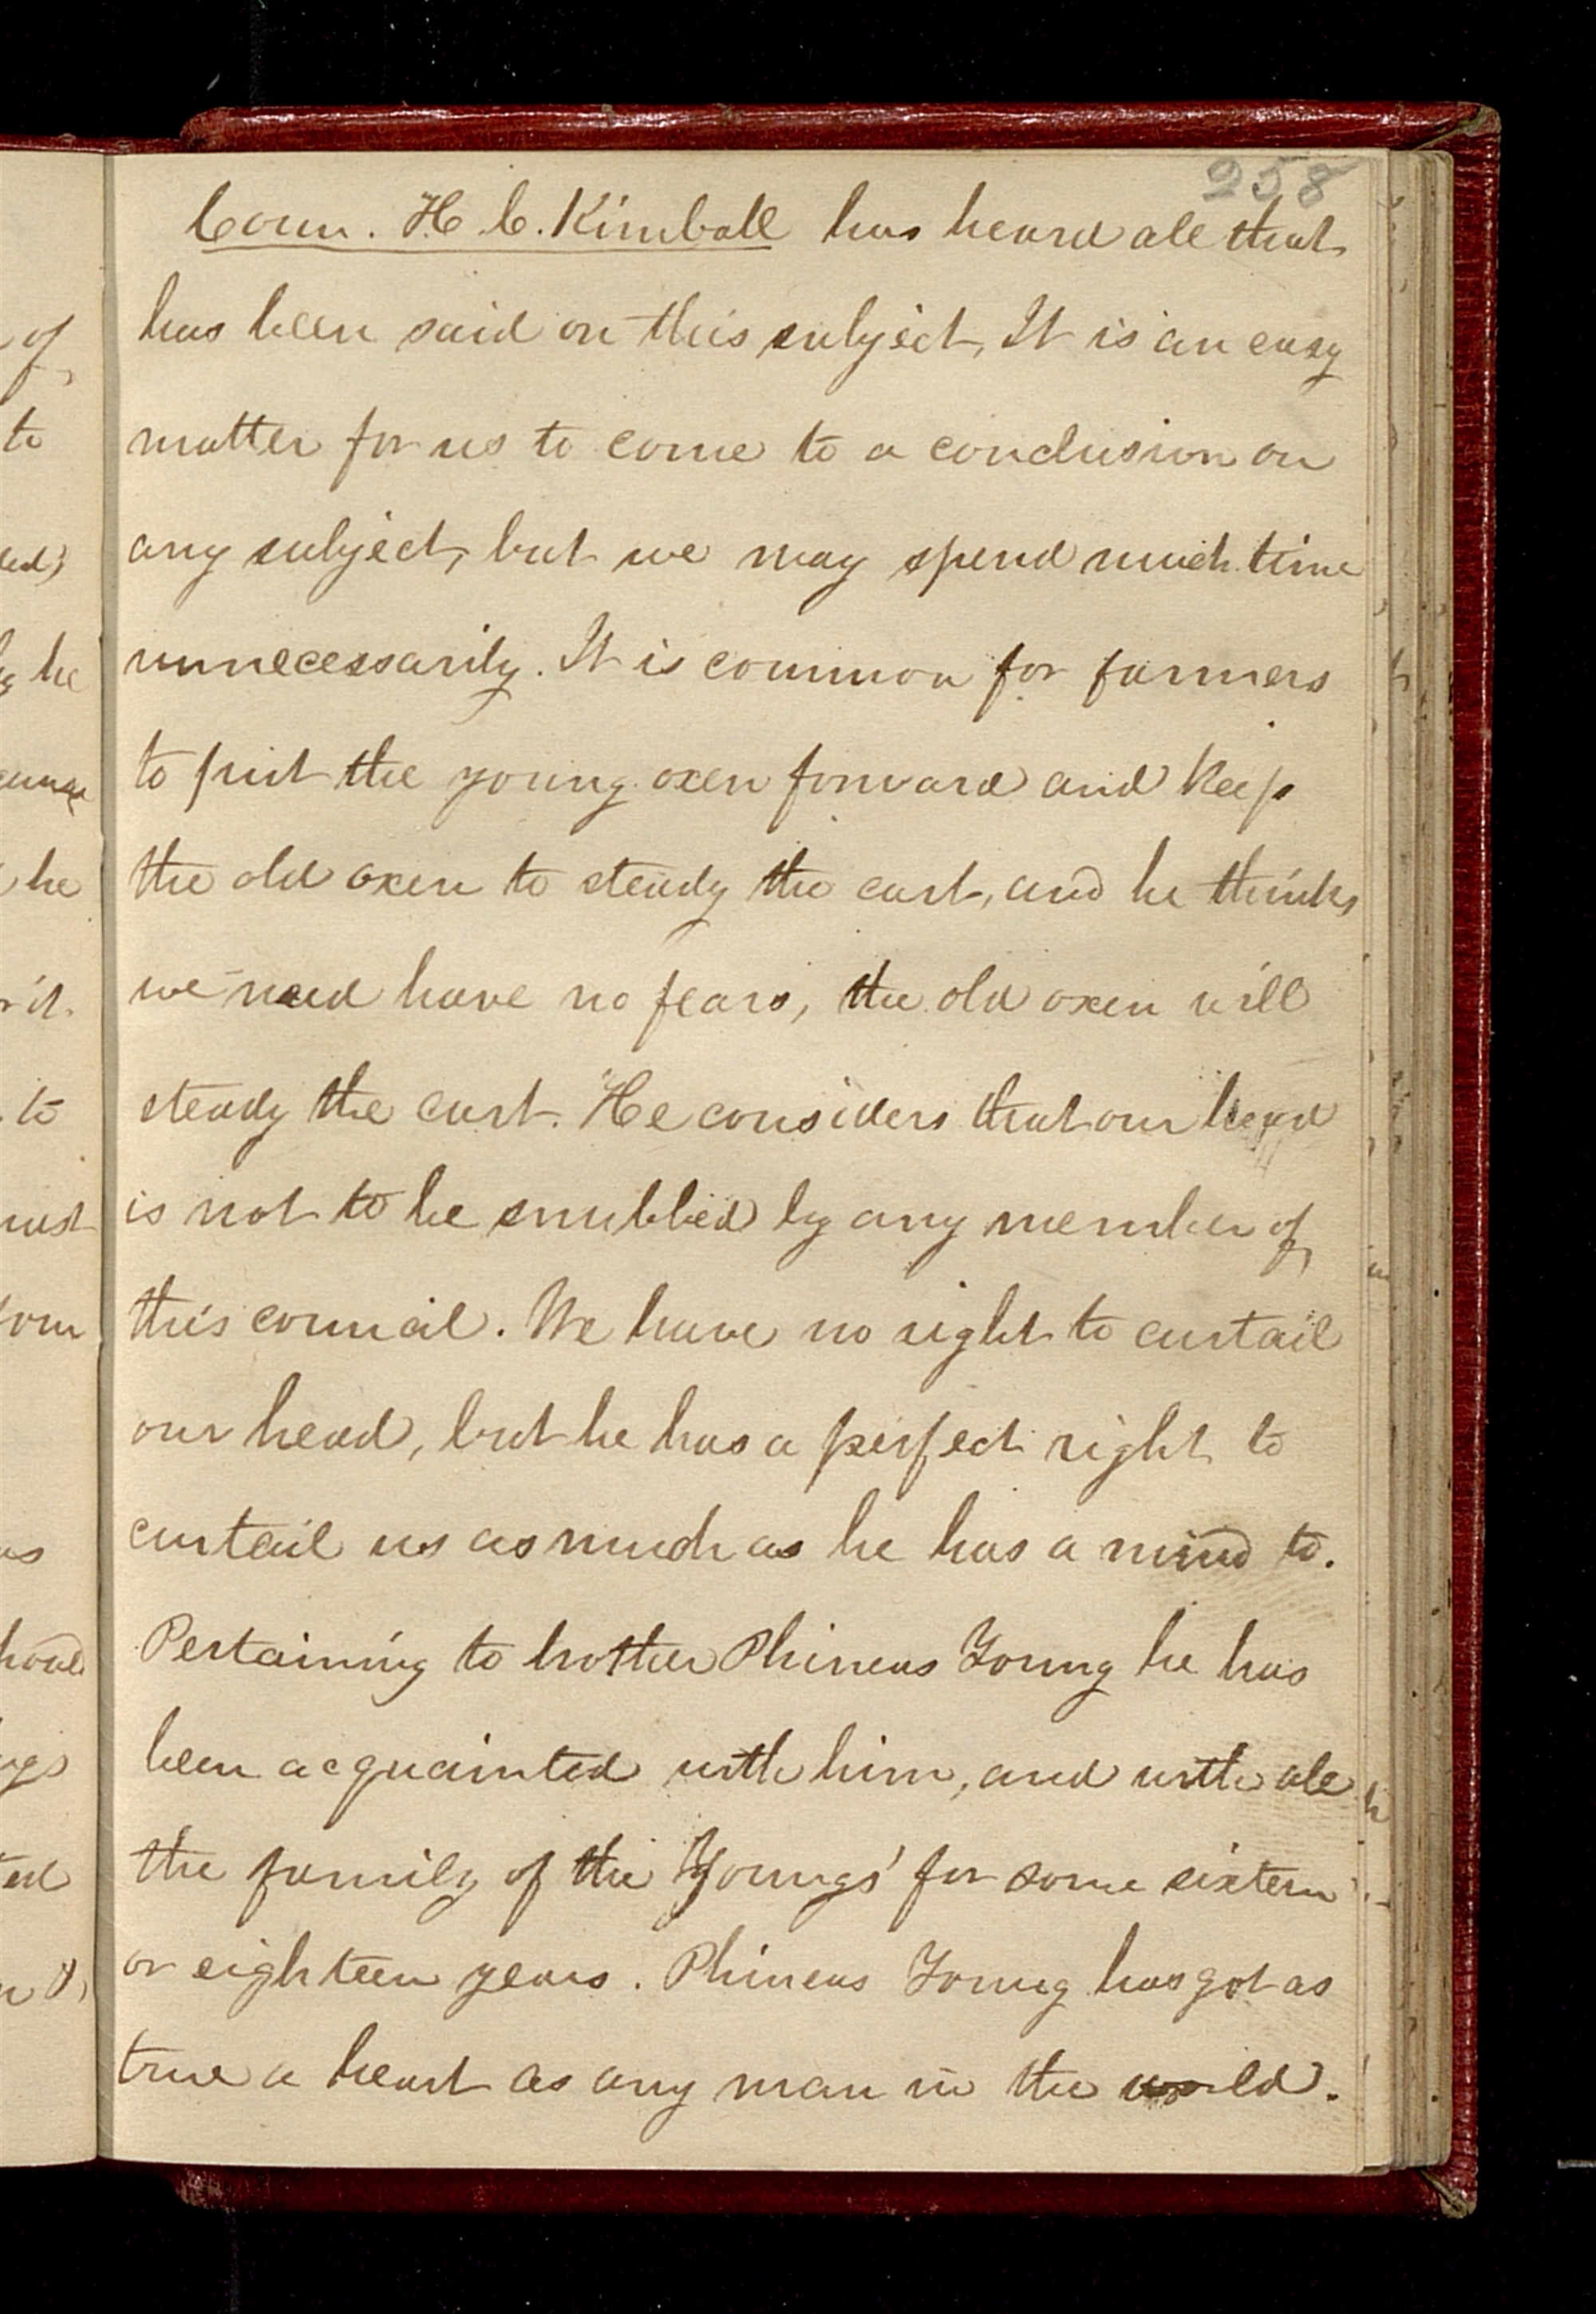 258
Coun. H. C. Kimball has heard all that
has been said on this subject, It is an easy
matter for us to come to a conclusion on
any subject, but we may spend much time
unnecessarily. It is common for farmers
to put the young oxen forward and keep
the old oxen to steady the cart, and he thinks
we need have no fears, the old oxen will
steady the cart. He considers that our head
is not to be snubbed by any member of
this council. We have no right to curtail
our head, but he has a perfect right to
curtail us as much as he has a mind to.
Pertaining to brother Phineas Young he has
been acquainted with him, and with all
the family of the Youngs' for some sixteen
or eighteen years. Phineas Young has got as
true a heart as any man in the world.
of
to
he
he
it.
to
us